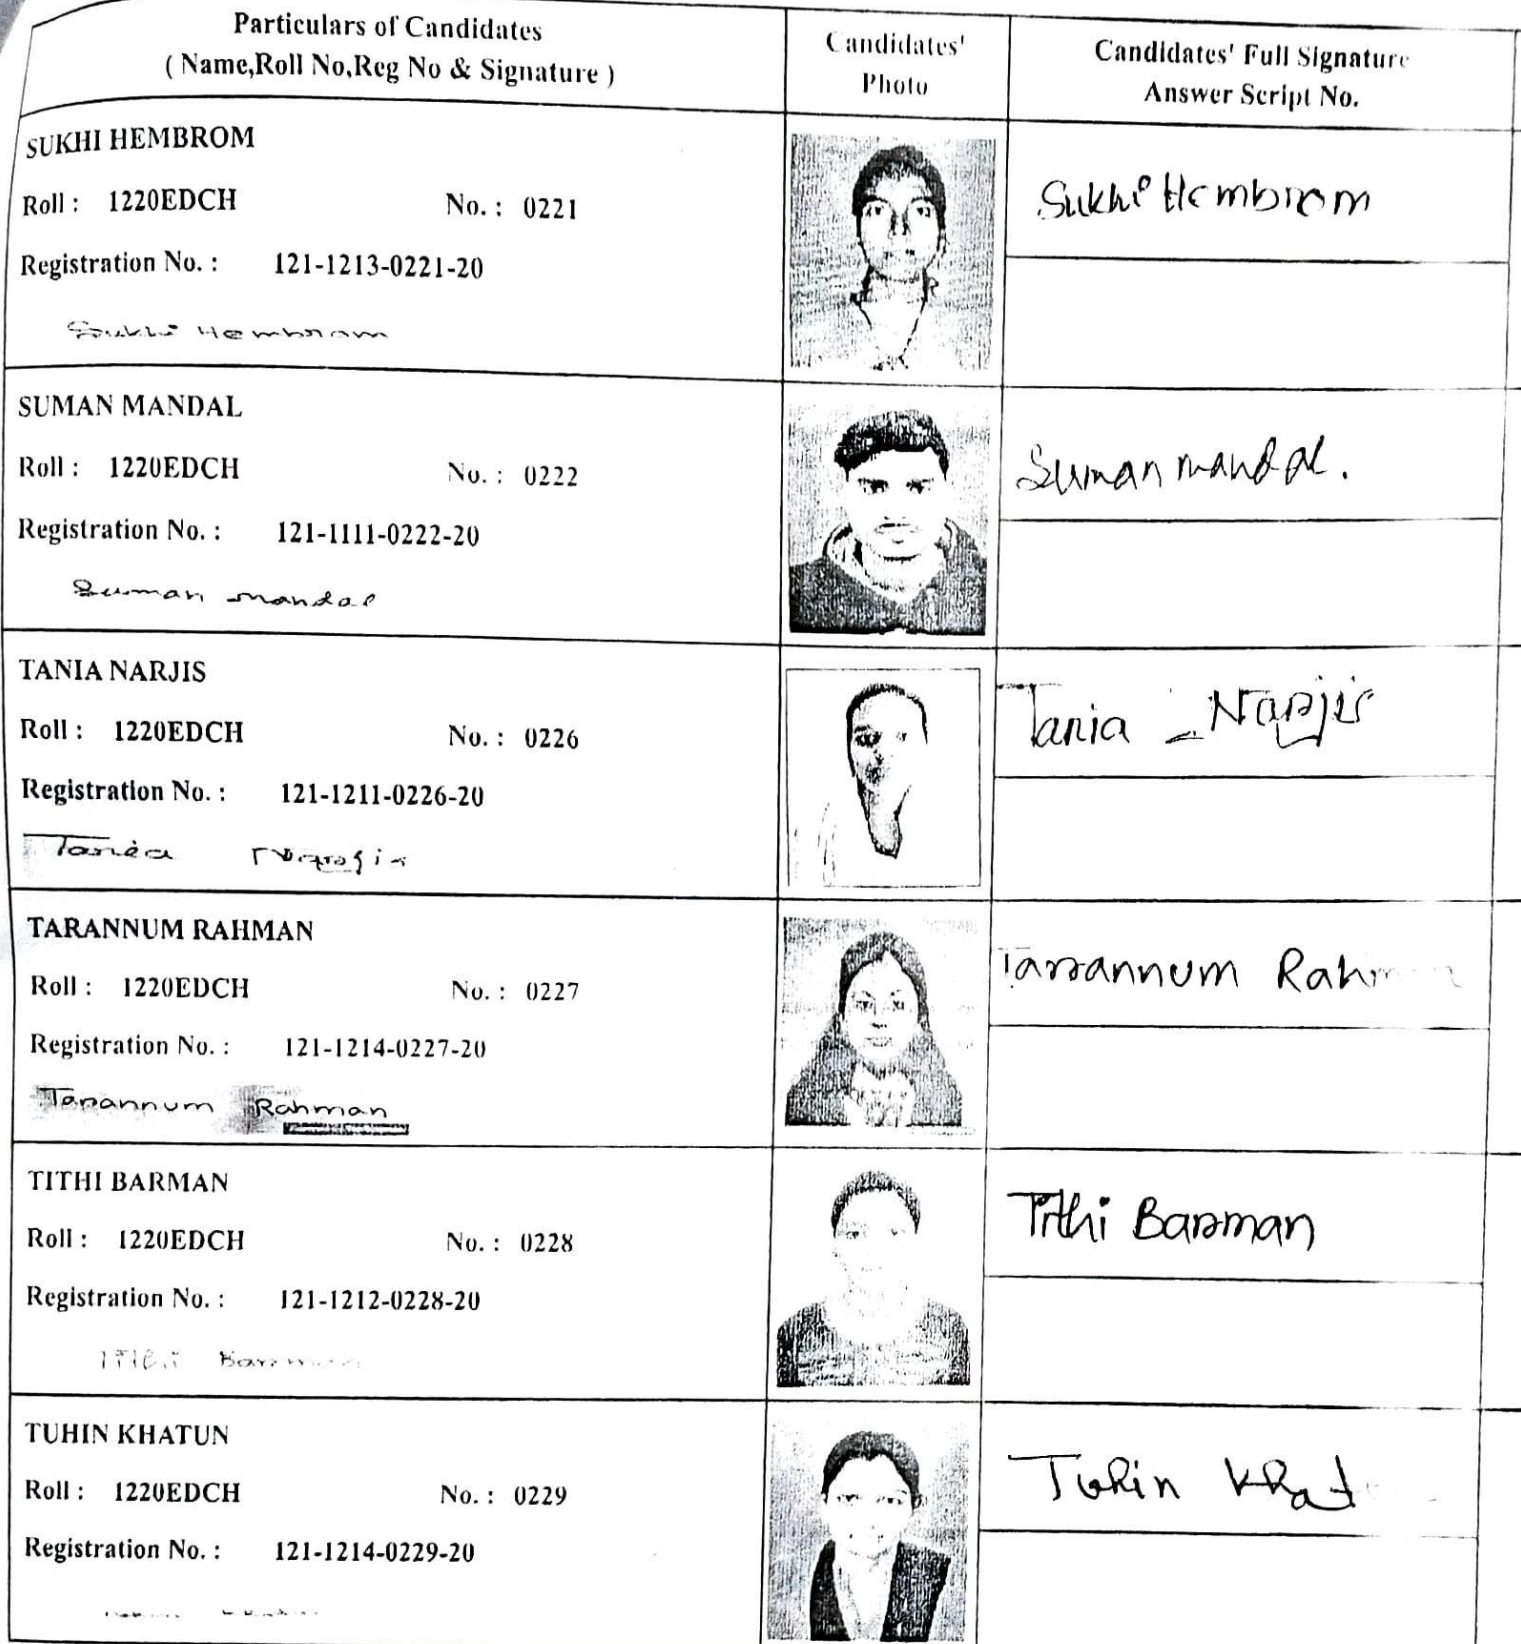 Particulars of Candidates
( Name,Roll No,Reg No & Signature )
Candidates'
Photo
Candidates' Full Signature
Answer Script No.
SUKHI HEMBROM
Roll : 1220EDCH No. : 0221
Registration No. : 121-1213-0221-20
Sukhi Hembrom
Sukhi Hembrom
SUMAN MANDAL
Roll : 1220EDCH No. : 0222
Registration No. : 121-1111-0222-20
Suman mandal
Suman mandal.
TANIA NARJIS
Roll : 1220EDCH No. : 0226
Registration No. : 121-1211-0226-20
Tania Narjis
Tania Narjis
TARANNUM RAHMAN
Roll : 1220EDCH No. : 0227
Registration No. : 121-1214-0227-20
Tarannum Rahman
Tarannum
TITHI BARMAN
Roll : 1220EDCH No. : 0228
Registration No. : 121-1212-0228-20
Tithi Barman
TUHIN KHATUN
Roll : 1220EDCH No. : 0229
Registration No. : 121-1214-0229-20
Tuhin